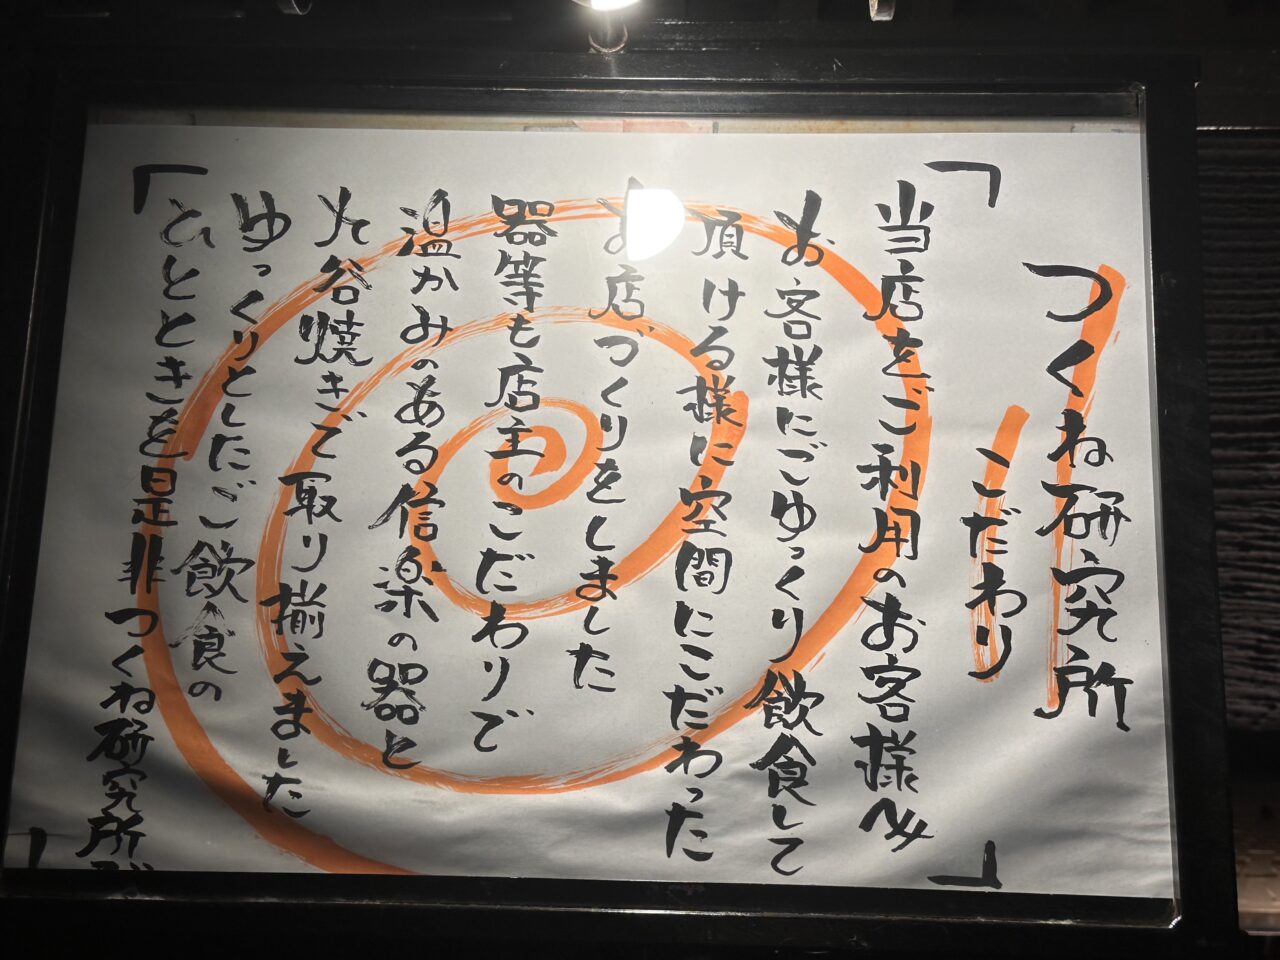 つくね研究所
こだわり
「当店をご利用のお客様へ」
お客様にごゆっくり飲食して
頂ける様に空間にこだわった
お店づくりをしました
器等も店主のこだわりで
温かみのある信楽の器と
九谷焼きで取り揃えました
ゆっくりとしたご飲食の
「ひとときを是非つくね研究所で」